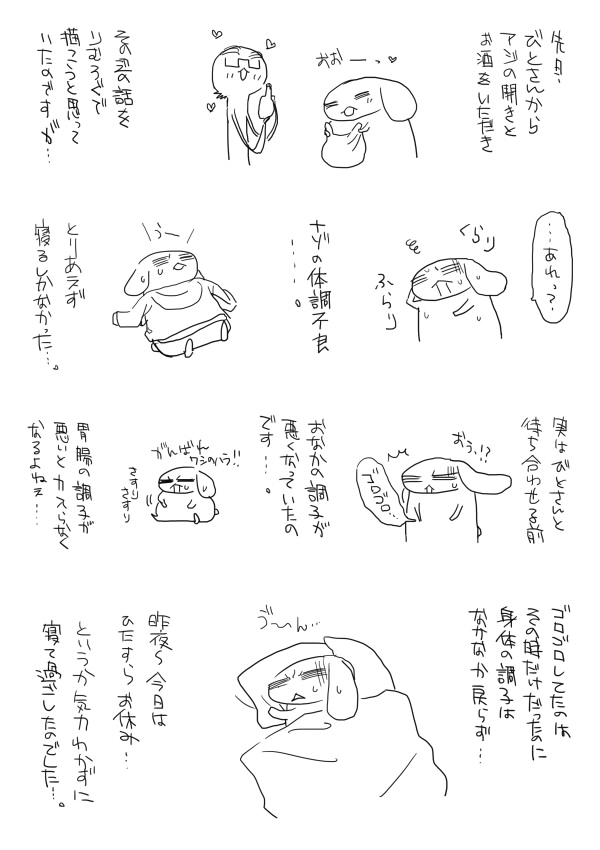 先日、
びとさんから
アジの開きと
お酒をいただき
おおーっ♡
その辺の話を
りむろぐで
描こうと思って
いたのですが…
…あれっ?
くらり
ふらり
ナゾの体調不良
……。
うー
とりあえず
寝るしかなかった…。
実はびとさんと
待ち合わせる前
おうっ!?
ゴロゴロ…
おなかの調子が
悪くなっていたの
です…。
がんばれ
ワシのハラ!!
さすり
さすり
胃腸の調子が
悪いと力入らなく
なるよねぇ……
ゴロゴロしてたのは
その時だけだったのに
身体の調子は
なかなか戻らず…
ゔ〜ん…
昨夜〜今日は
ひたすらお休み…
というか気力わかずに
寝て過ごしたのでした…。